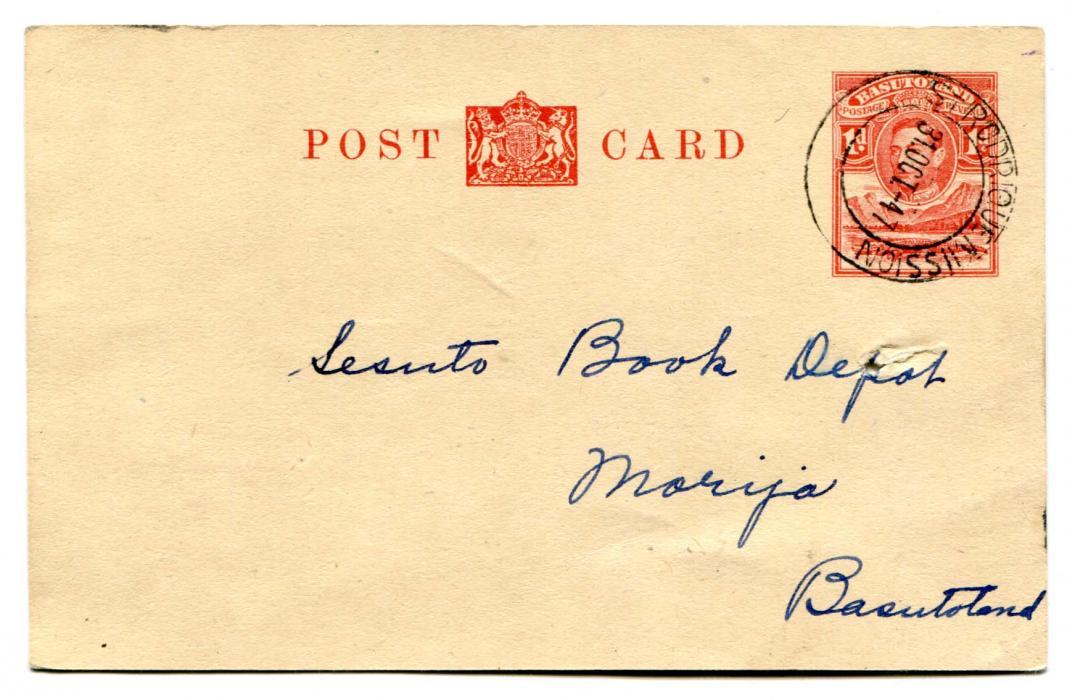 POST CARD
BASUTOLAND
POSTAGE REVENUE
1D. 1D.
ST RODRIQUE MISSION
31 OCT 47
Sesuto Book Depot
Morija
Basutoland